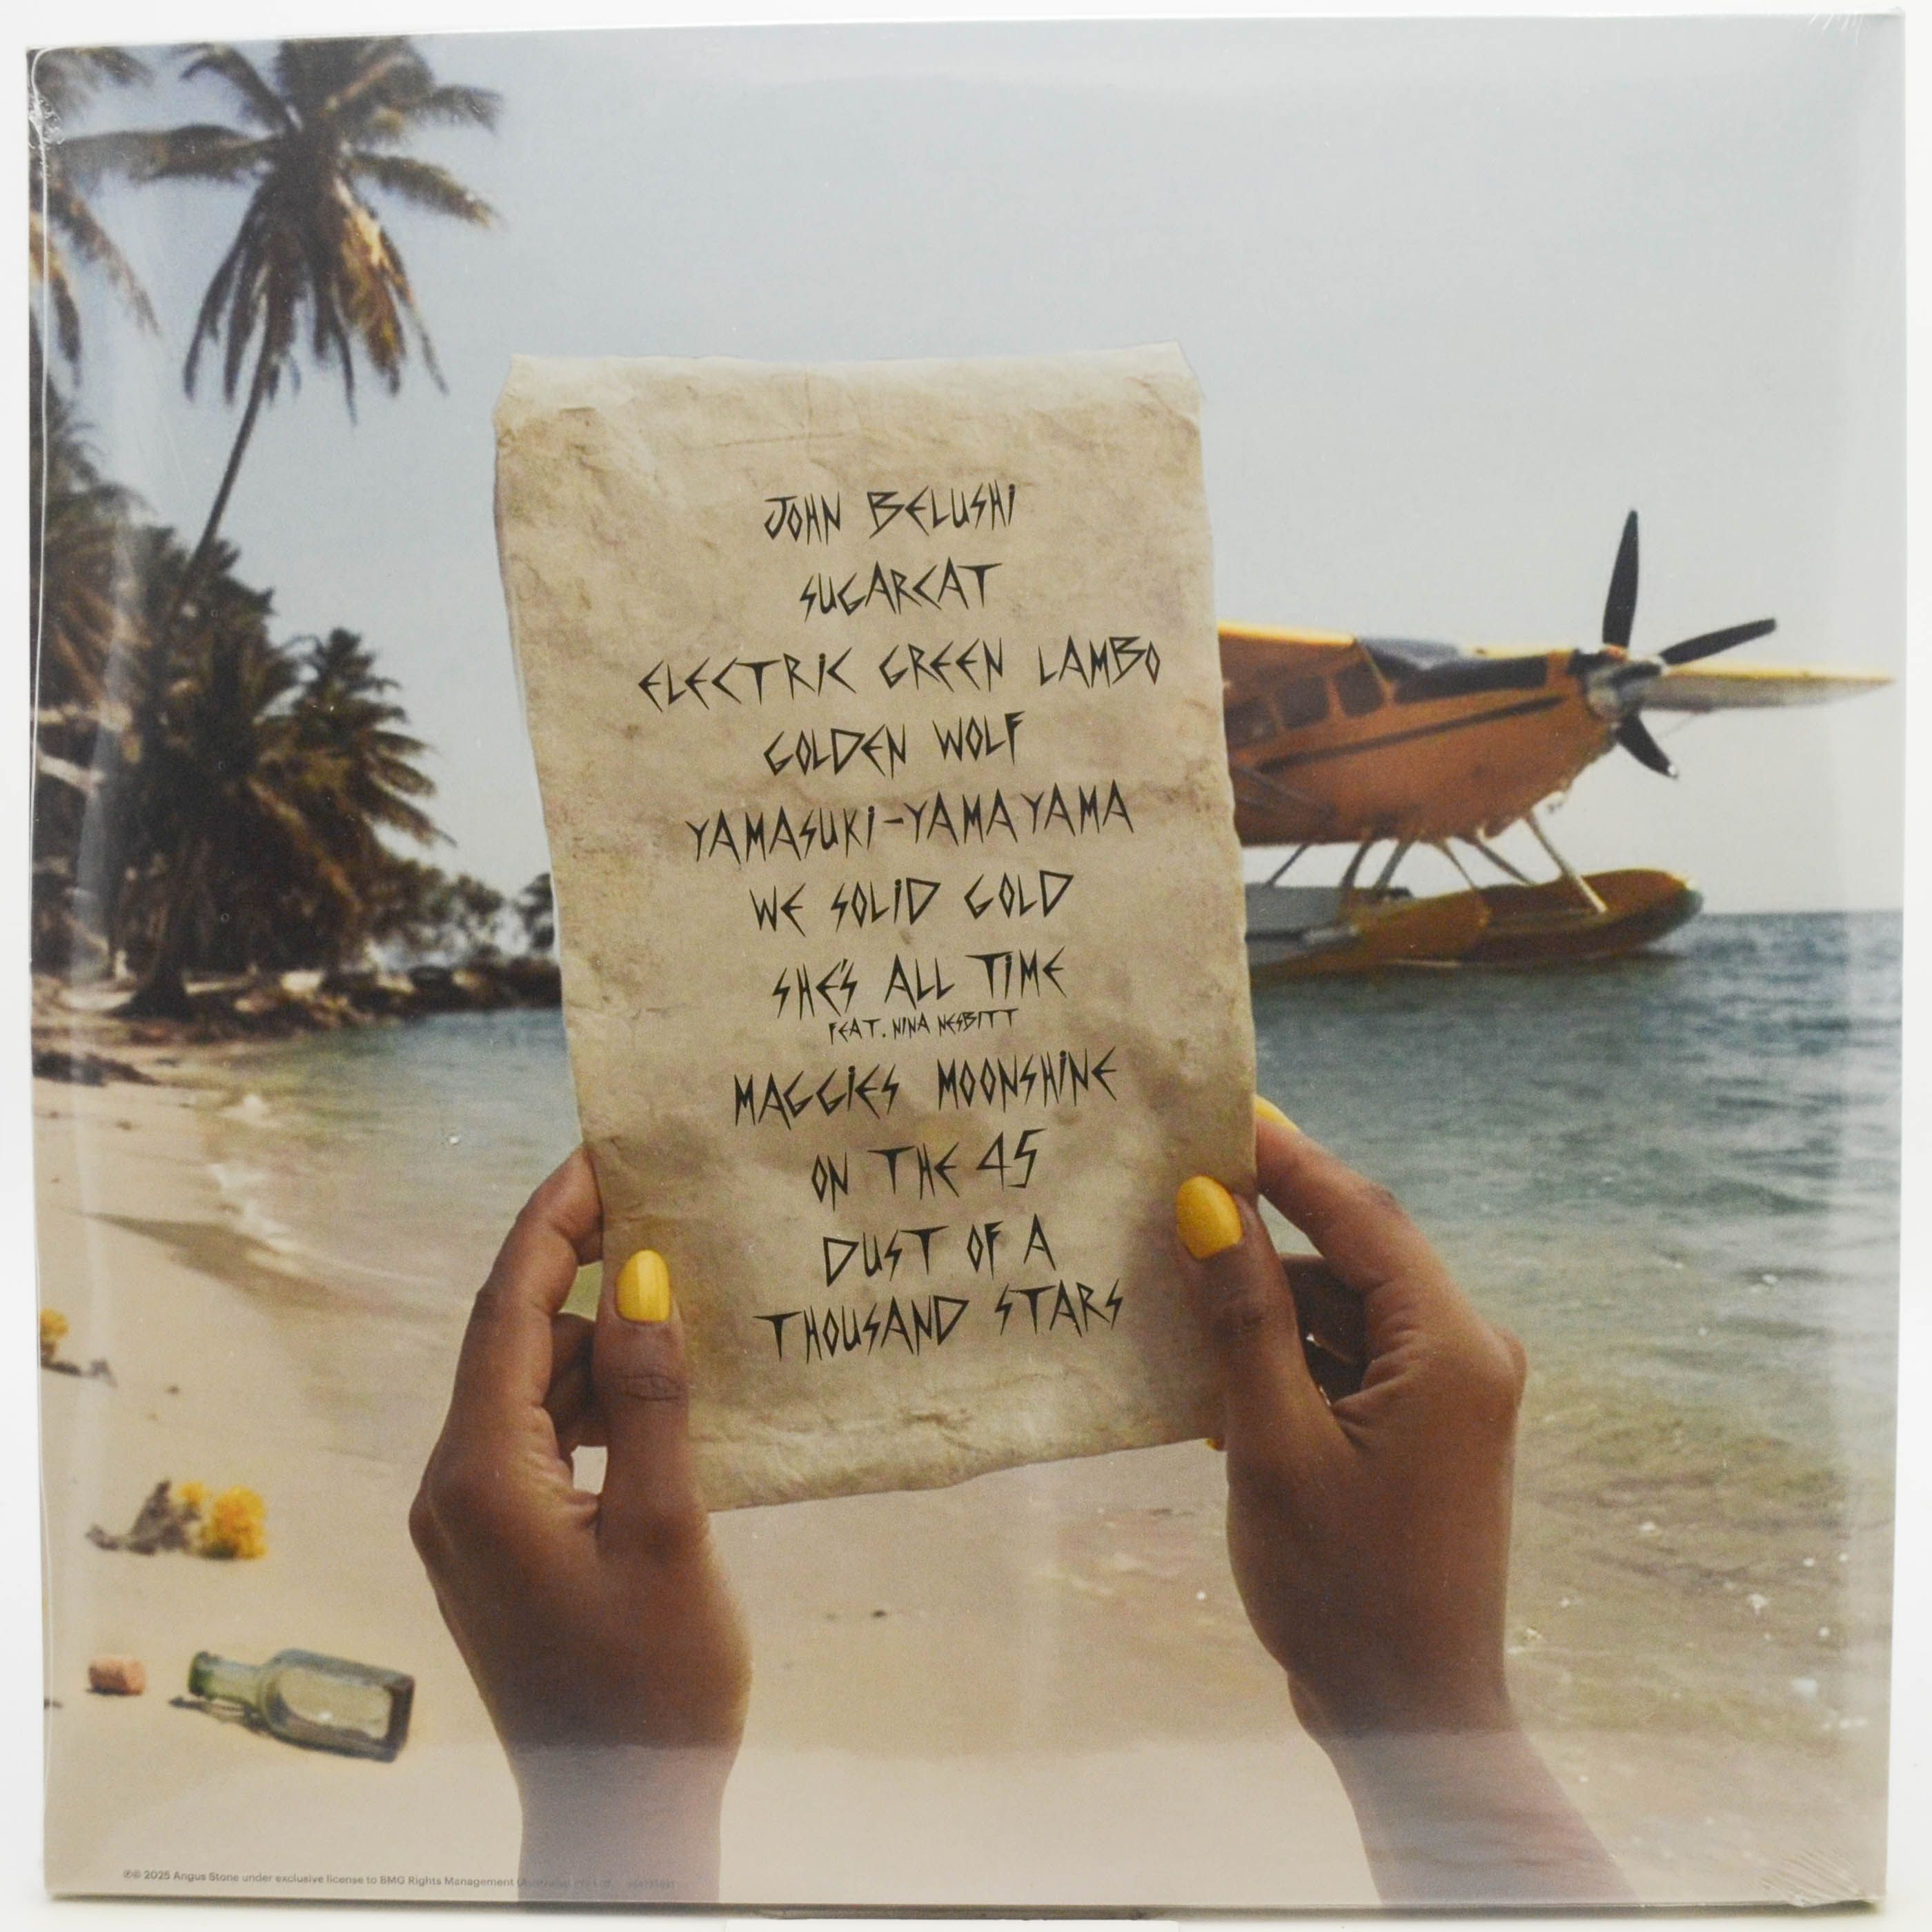 JOHN BELUSHI
SUGARCAT
ELECTRIC GREEN LAMBO
GOLDEN WOLF
YAMASUKI-YAMAYAMA
WE SOLID GOLD
SHE'S ALL TIME
FEAT. NINA NESBITT
MAGGIES MOONSHINE
ON THE 45
DUST OF A
THOUSAND STARS
℗© 2025 Angus Stone under exclusive license to BMG Rights Management (Australia)